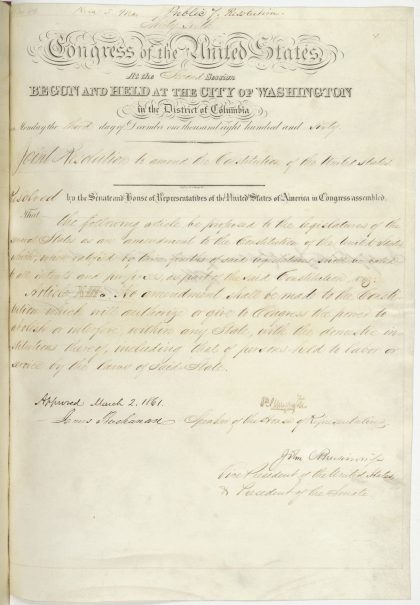 Public Resolution
Congress of the United States,
At the Second Session
BEGUN AND HELD AT THE CITY OF WASHINGTON
in the District of Columbia
on Monday the third day of December one thousand eight hundred and sixty.
Joint Resolution to amend the Constitution of the United States
Resolved by the Senate and House of Representatives of the United States of America in Congress assembled,
That
the following article be proposed to the legislatures of the
several States as an amendment to the Constitution of the United States
which, when ratified by three fourths of said legislatures, shall be valid
to all intents and purposes, as part of the said Constitution, viz:
Article XIII. No amendment shall be made to the Consti-
tution which will authorize or give to Congress the power to
abolish or interfere, within any State, with the domestic in-
stitutions thereof, including that of persons held to labor or
service by the laws of said State.
Approved March 2. 1861.
James Buchanan
Speaker of the House of Representatives
John C. Breckinridge
Vice President of the United States
& President of the Senate